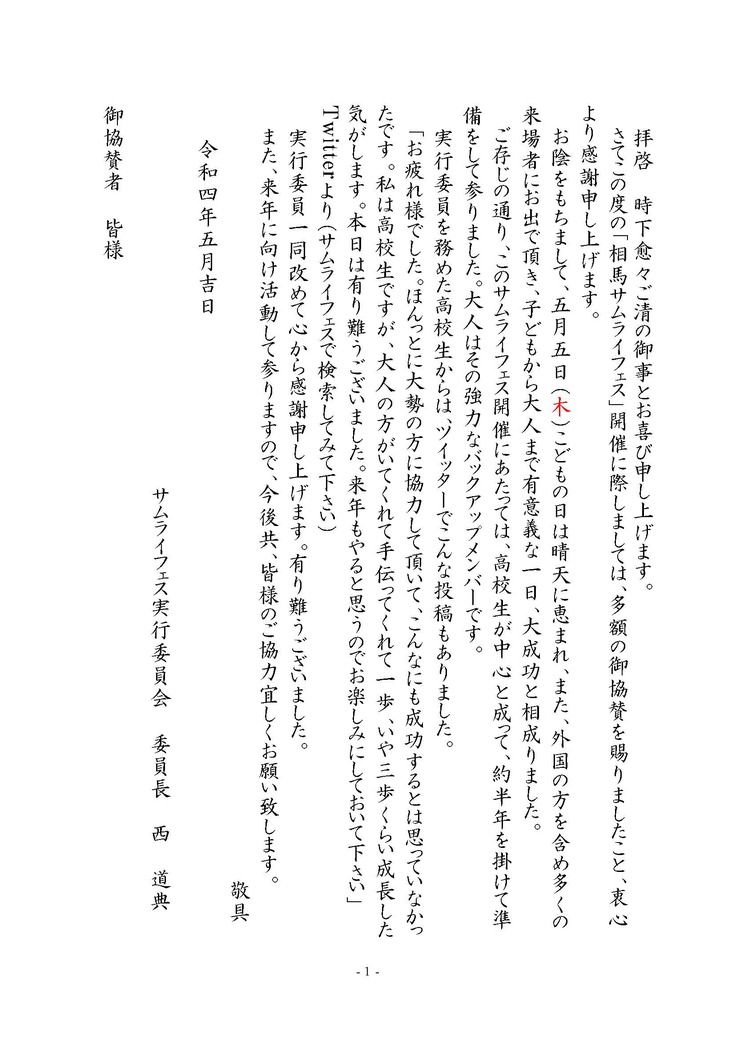 拝啓　時下愈々ご清の御事とお喜び申し上げます。
さてこの度の「相馬サムライフェス」開催に際しましては、多額の御協賛を賜りましたこと、衷心
より感謝申し上げます。
お陰をもちまして、五月五日（木）こどもの日は晴天に恵まれ、また、外国の方を含め多くの
来場者にお出で頂き、子どもから大人まで有意義な一日、大成功と相成りました。
ご存じの通り、このサムライフェス開催にあたっては、高校生が中心と成って、約半年を掛けて準
備をして参りました。大人はその強力なバックアップメンバーです。
実行委員を務めた高校生からは、ツイッターでこんな投稿もありました。
「お疲れ様でした。ほんっとに大勢の方に協力して頂いて、こんなにも成功するとは思っていなかっ
たです。私は高校生ですが、大人の方がいてくれて手伝ってくれて一歩、いや三歩くらい成長した
気がします。本日は有り難うございました。来年もやると思うのでお楽しみにしておいて下さい」
Twitterより（サムライフェスで検索してみて下さい）
実行委員一同改めて心から感謝申し上げます。有り難うございました。
また、来年に向け活動して参りますので、今後共、皆様のご協力宜しくお願い致します。
敬具
令和四年五月吉日
サムライフェス実行委員会　委員長　西　道典
御協賛者　皆様
- 1 -